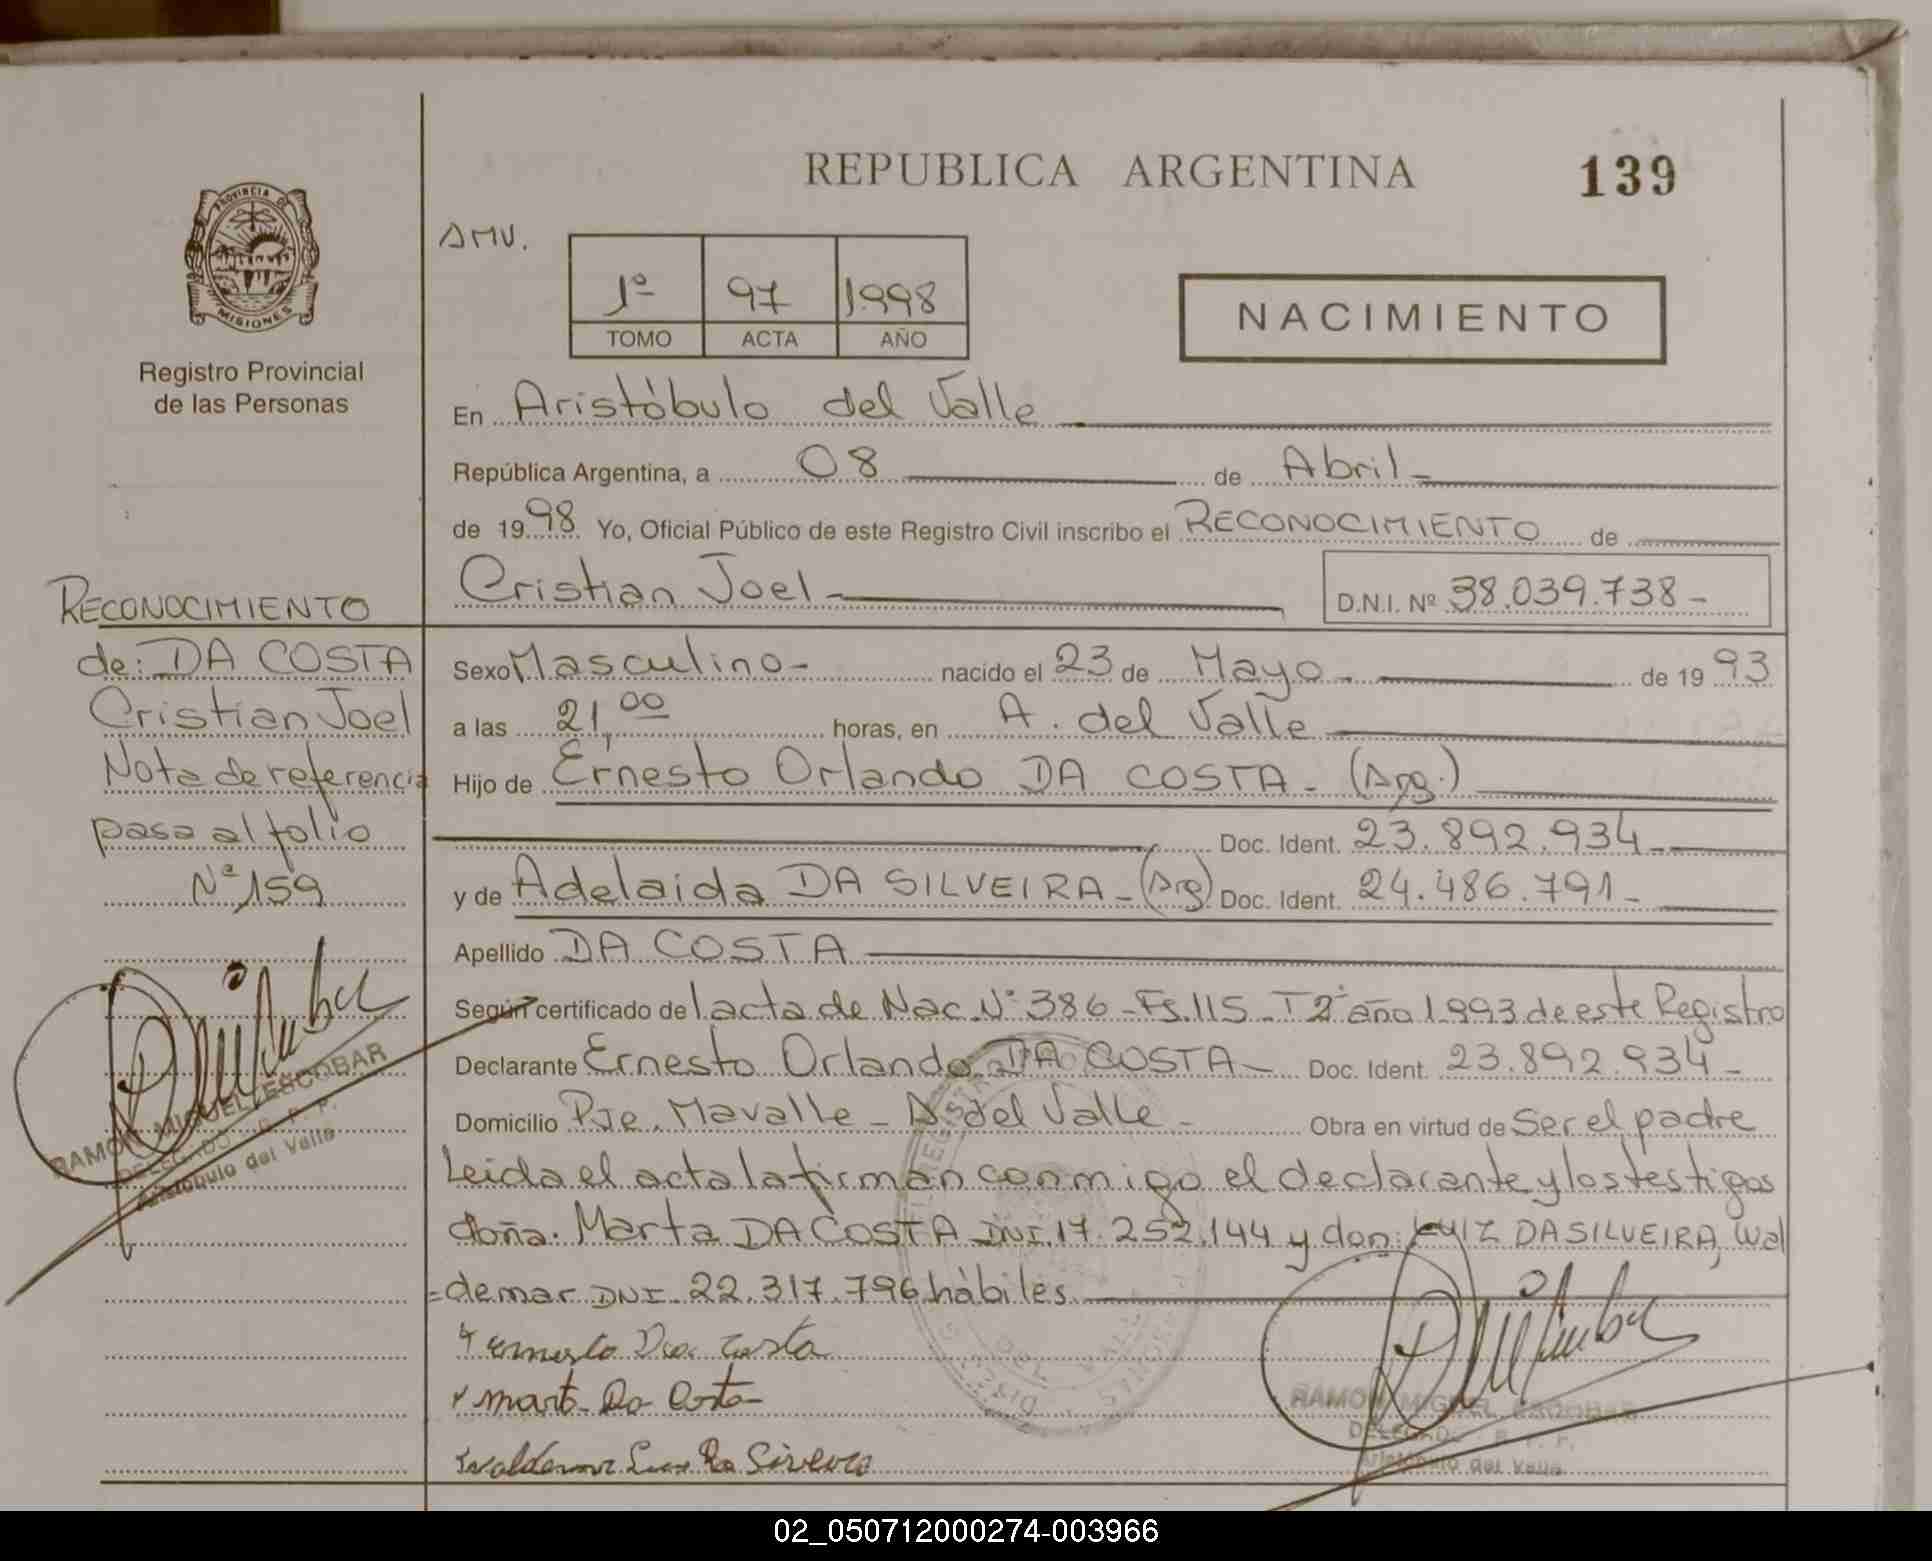 REPUBLICA ARGENTINA
139
PROVINCIA DE
MISIONES
Registro Provincial
de las Personas
AMV.
1º 97 1.998
TOMO ACTA AÑO
NACIMIENTO
En Aristóbulo del Valle
República Argentina, a 08 de Abril
de 1998 Yo, Oficial Público de este Registro Civil inscribo el RECONOCIMIENTO de
Cristian Joel D.N.I. Nº 38.039.738
Sexo Masculino nacido el 23 de Mayo de 1993
a las 21,00 horas, en A. del Valle
Hijo de Ernesto Orlando DA COSTA - (Arg.)
Doc. Ident. 23.892.934
y de Adelaida DA SILVEIRA - (Arg) Doc. Ident. 24.486.791
Apellido DA COSTA
Según certificado del acta de Nac. Nº 386 - Fs. 115 - Tº 2º año 1.993 de este Registro
Declarante Ernesto Orlando DA COSTA Doc. Ident. 23.892.934
Domicilio Pje. Mavalle - A. del Valle - Obra en virtud de Ser el padre
Leida el acta la firman conmigo el declarante y los testigos
doña. Marta DA COSTA DNI. 17.252.144 y don: LUIZ DA SILVEIRA, Wal
=demar DNI. 22.317.796 hábiles
ernesto Da costa
Marta Da Costa
Waldemar Luiz Da Silveira
RAMON MIGUEL ESCOBAR
DELEGADO R. P. P.
Aristóbulo del Valle
RECONOCIMIENTO
de: DA COSTA
Cristian Joel
Nota de referencia
pasa al folio
Nº 159
RAMON MIGUEL ESCOBAR
DELEGADO R. P. P.
Aristóbulo del Valle
02_050712000274-003966